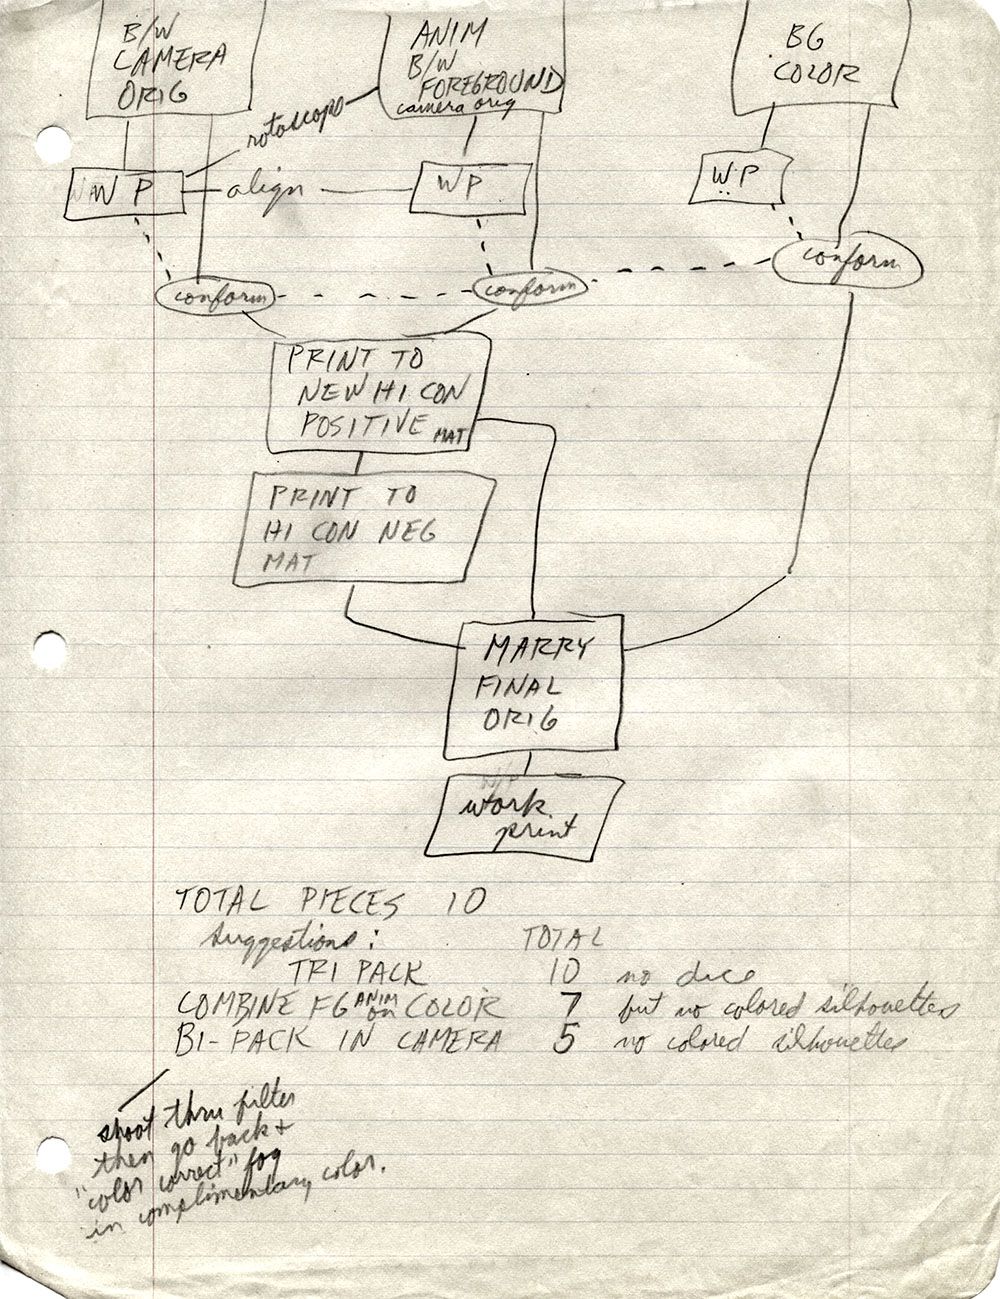 B/W
CAMERA
ORIG
ANIM
B/W
FOREGROUND
camera orig
BG
COLOR
rotoscope
W P
align
WP
WP
conform
conform
conform
PRINT TO
NEW HI CON
POSITIVE MAT
PRINT TO
HI CON NEG
MAT
MARRY
FINAL
ORIG
work
print
TOTAL PIECES 10
Suggestions: TOTAL
TRI PACK 10 no dice
COMBINE FG ANIM on COLOR 7 but no colored silhouettes
BI-PACK IN CAMERA 5 no colored silhouettes
shoot thru filter
then go back +
"color correct" fog
in complimentary color.